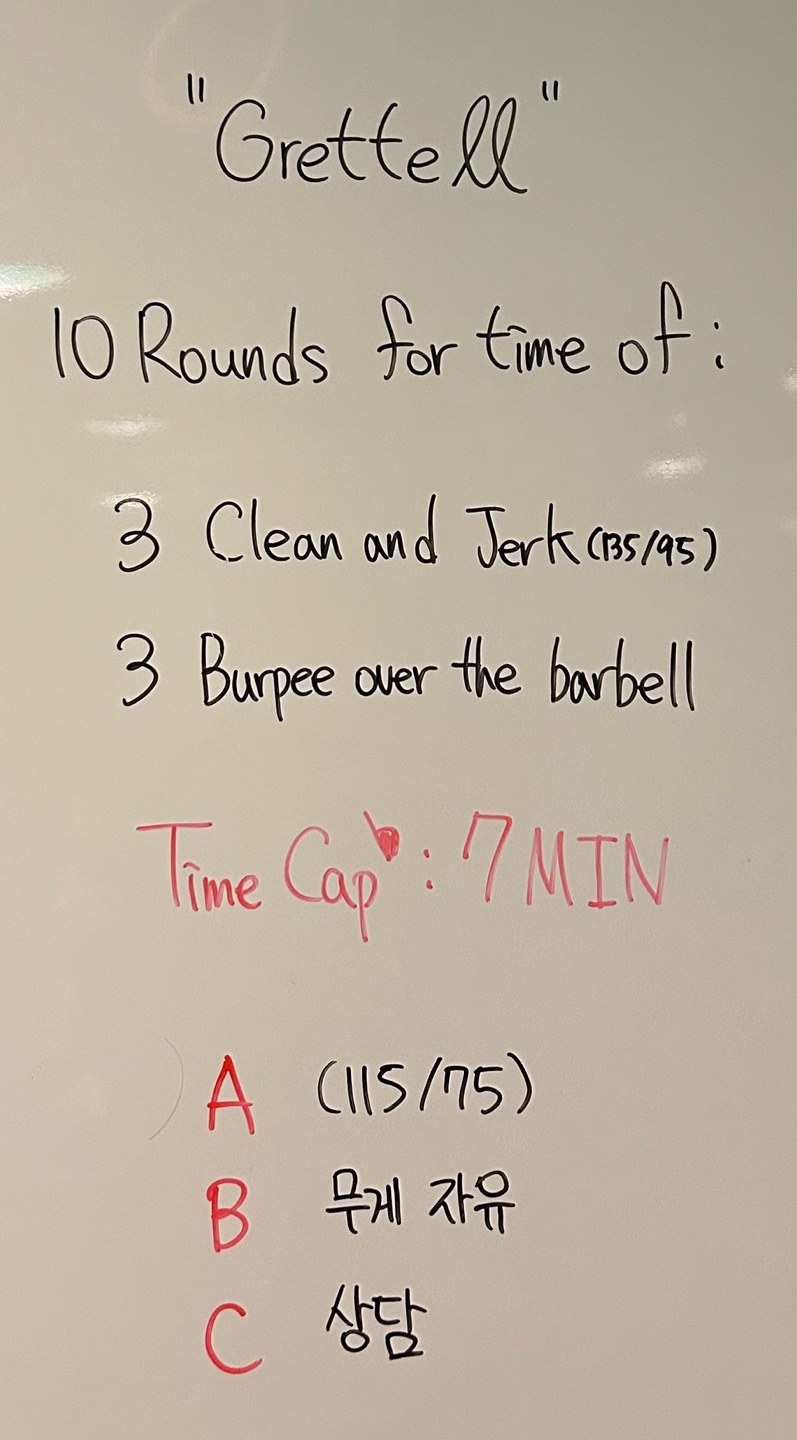 "Grettell"
10 Rounds for time of:
3 Clean and Jerk (135/95)
3 Burpee over the barbell
Time Cap: 7 MIN
A (115/75)
B 무게 자유
C 상담